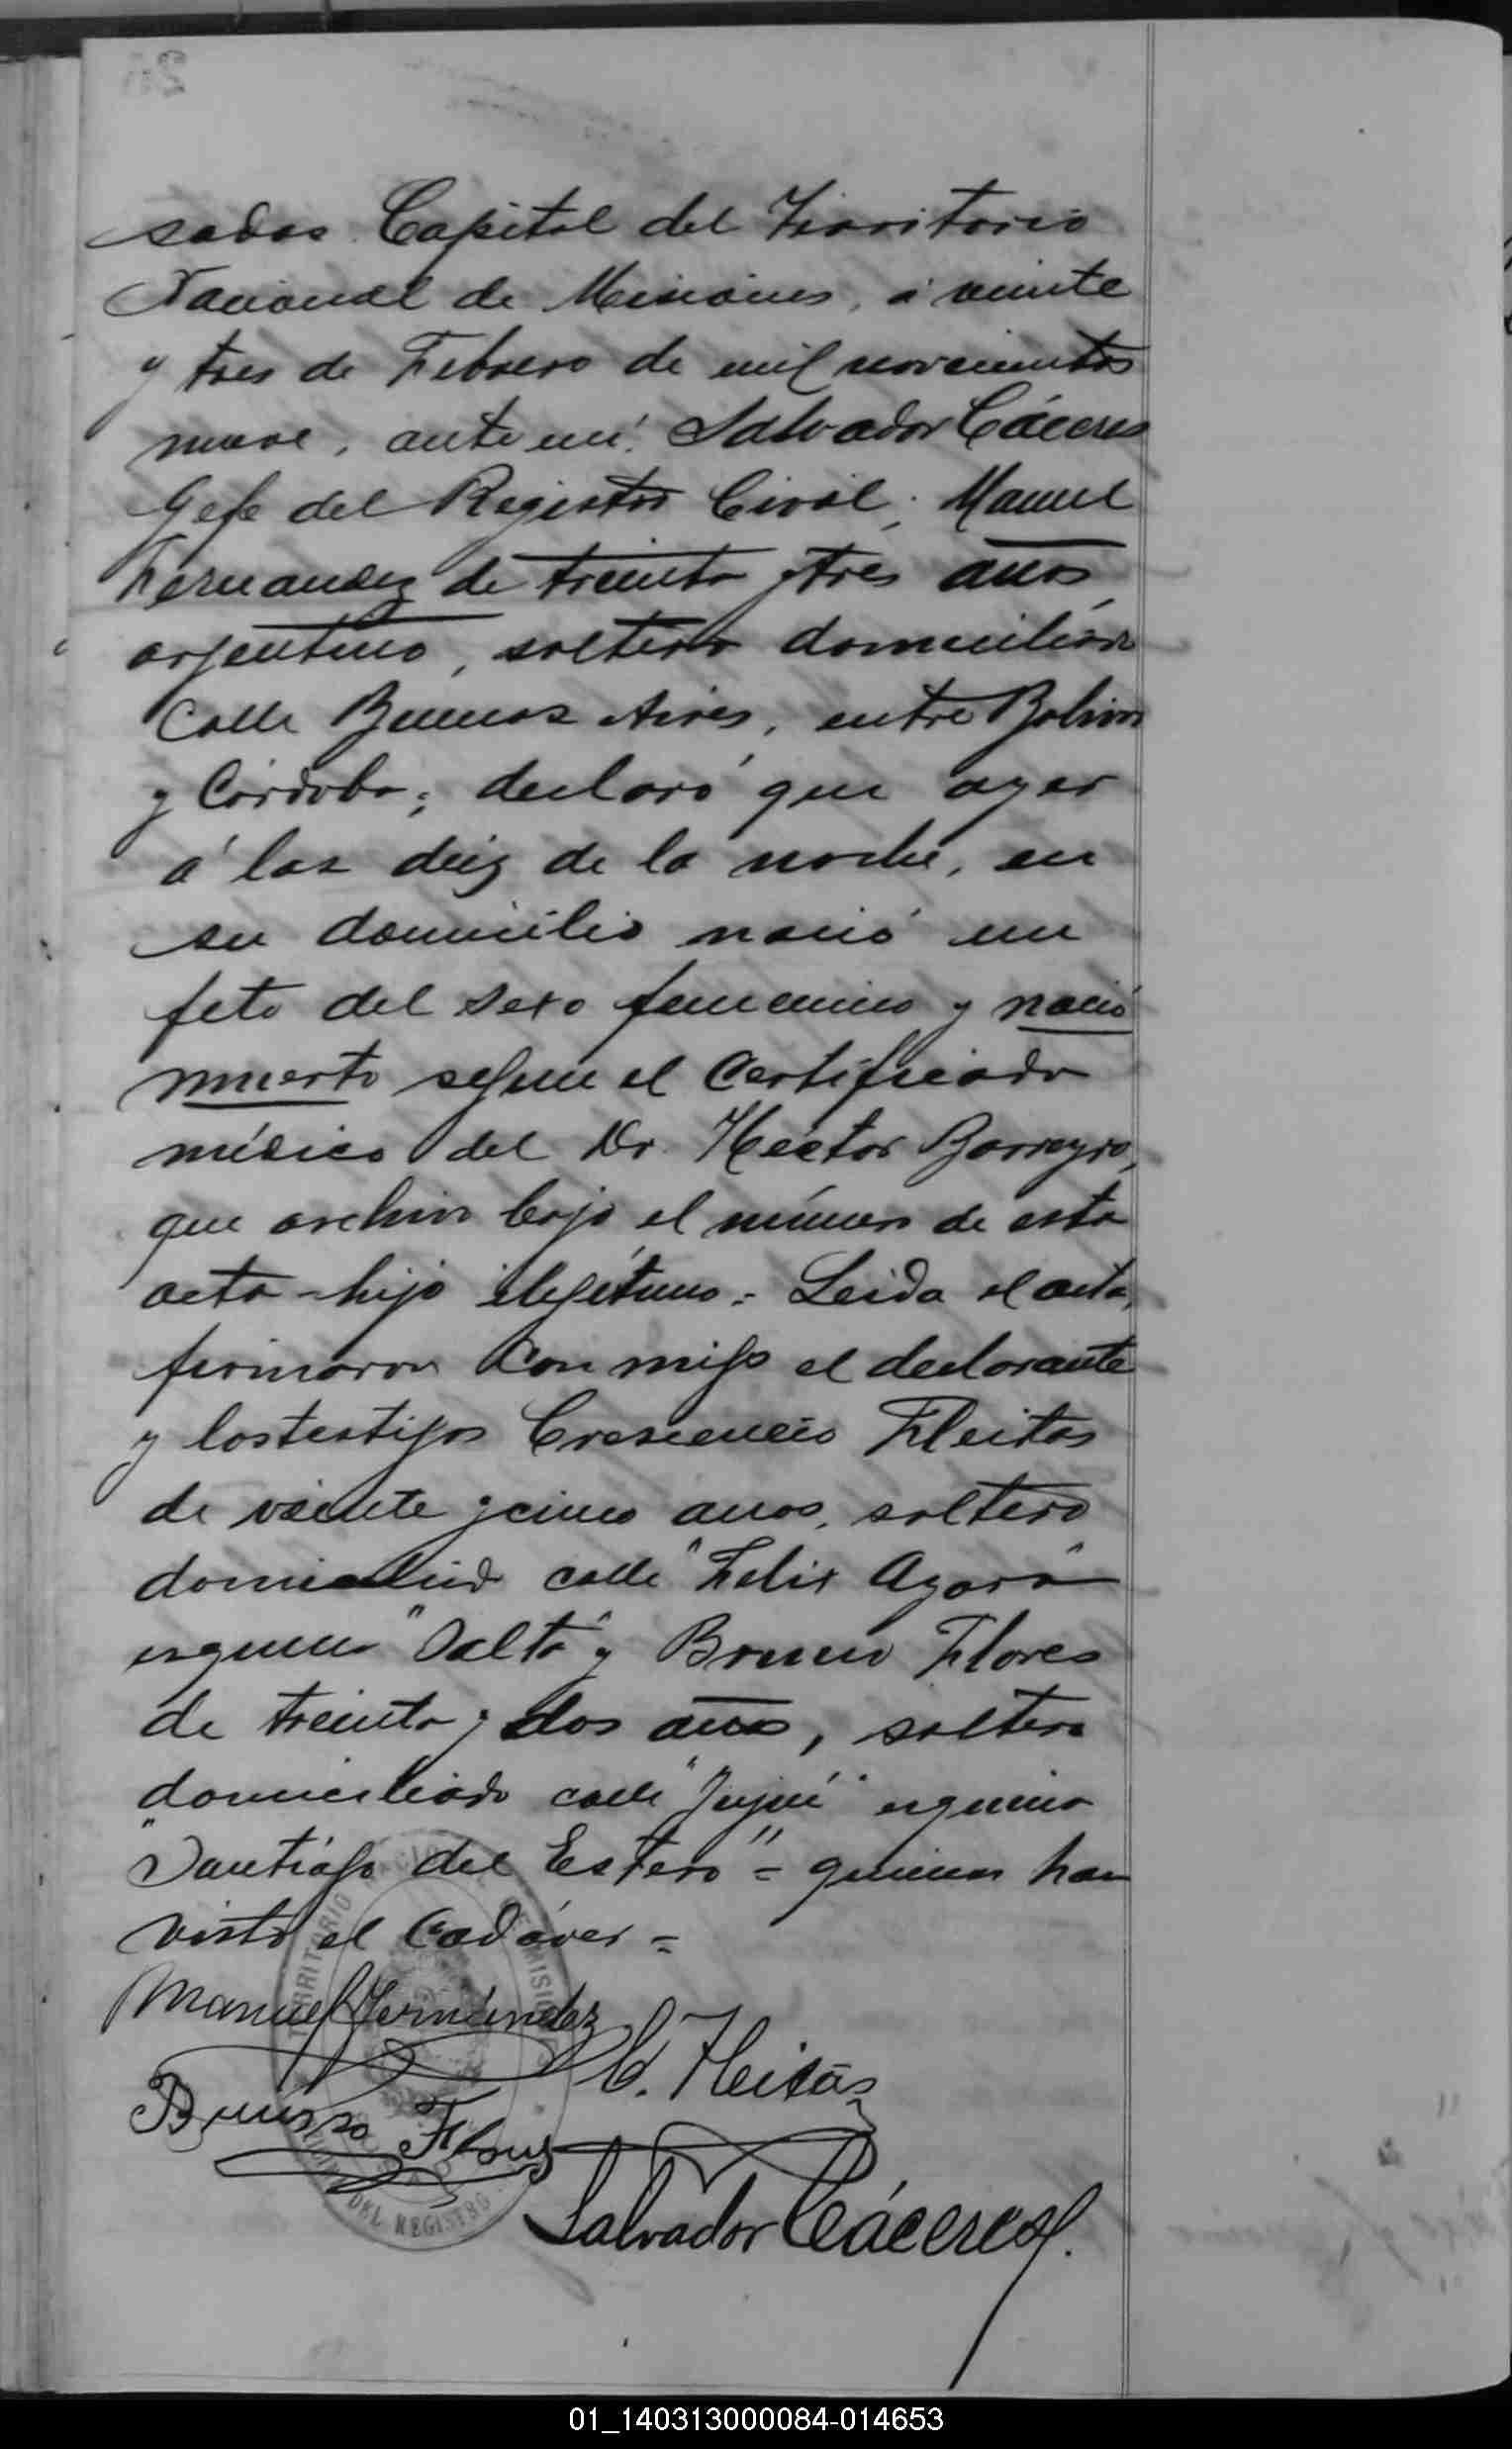 sadas Capital del Territorio
Nacional de Misiones, á veinte
y tres de Febrero de mil novecientos
nueve, ante mí: Salvador Cáceres
Gefe del Registro Civil; Manuel
Fernandez de treinta y tres anos,
argentino, soltero domiciliado
Calle Buenos Aires, entre Bolivar
y Córdoba; declaró que ayer
á las diez de la noche, en
su domicilio nació un
feto del sexo femenino y nació
muerto segun el Certificado
médico del Dr. Héctor Barreyro,
que archivo bajo el número de esta
acta - hijo ilegítimo. = Leida el acta,
firmaron conmigo el declarante
y los testigos Crescencio Fleitas
de veinte y cinco anos, soltero
domiciliado calle "Felix Azara"
esquina "Salta" y Bruno Flores
de treinta y dos anos, soltero
domiciliado calle "Jujui" esquina
"Santiago del Estero" = quienes han
visto el Cadáver =
Manuel Fernández
C. Fleitas
Bruno Flores
Salvador Cáceres
TERRITORIO NACIONAL DE MISIONES
DEL REGISTRO
01_140313000084-014653